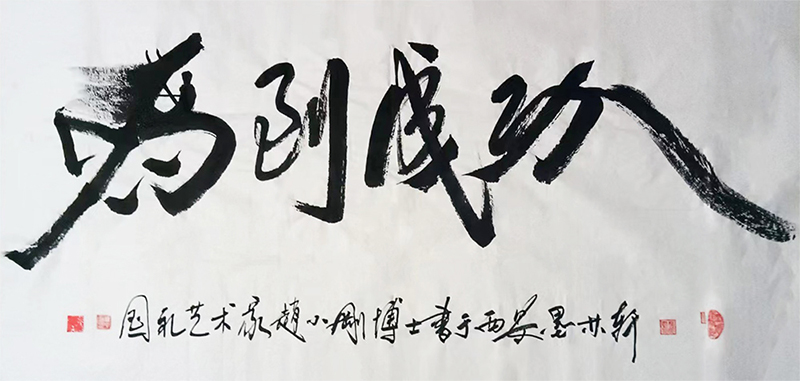 馬到成功
国礼艺术家趙小剛博士書于西安墨林轩